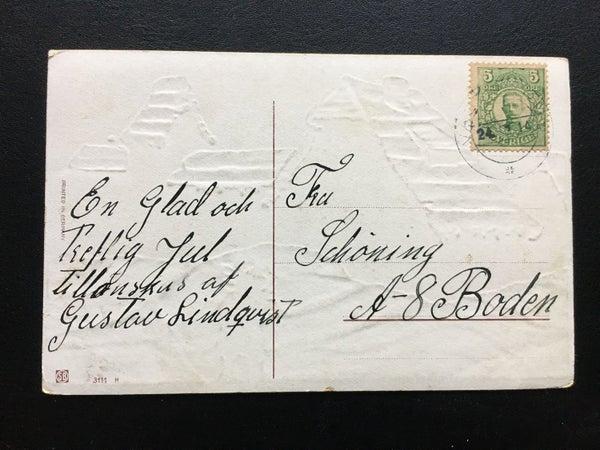 5 5
SVERIGE
24
En Glad och
Treflig Jul
tillönskas af
Gustav Lindqvist
Fru
Schöning
A-8 Boden
PRINTED IN GERMANY
SB
3111 H